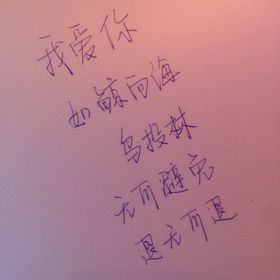 我爱你
如鲸向海
鸟投林
无可避免
退无可退